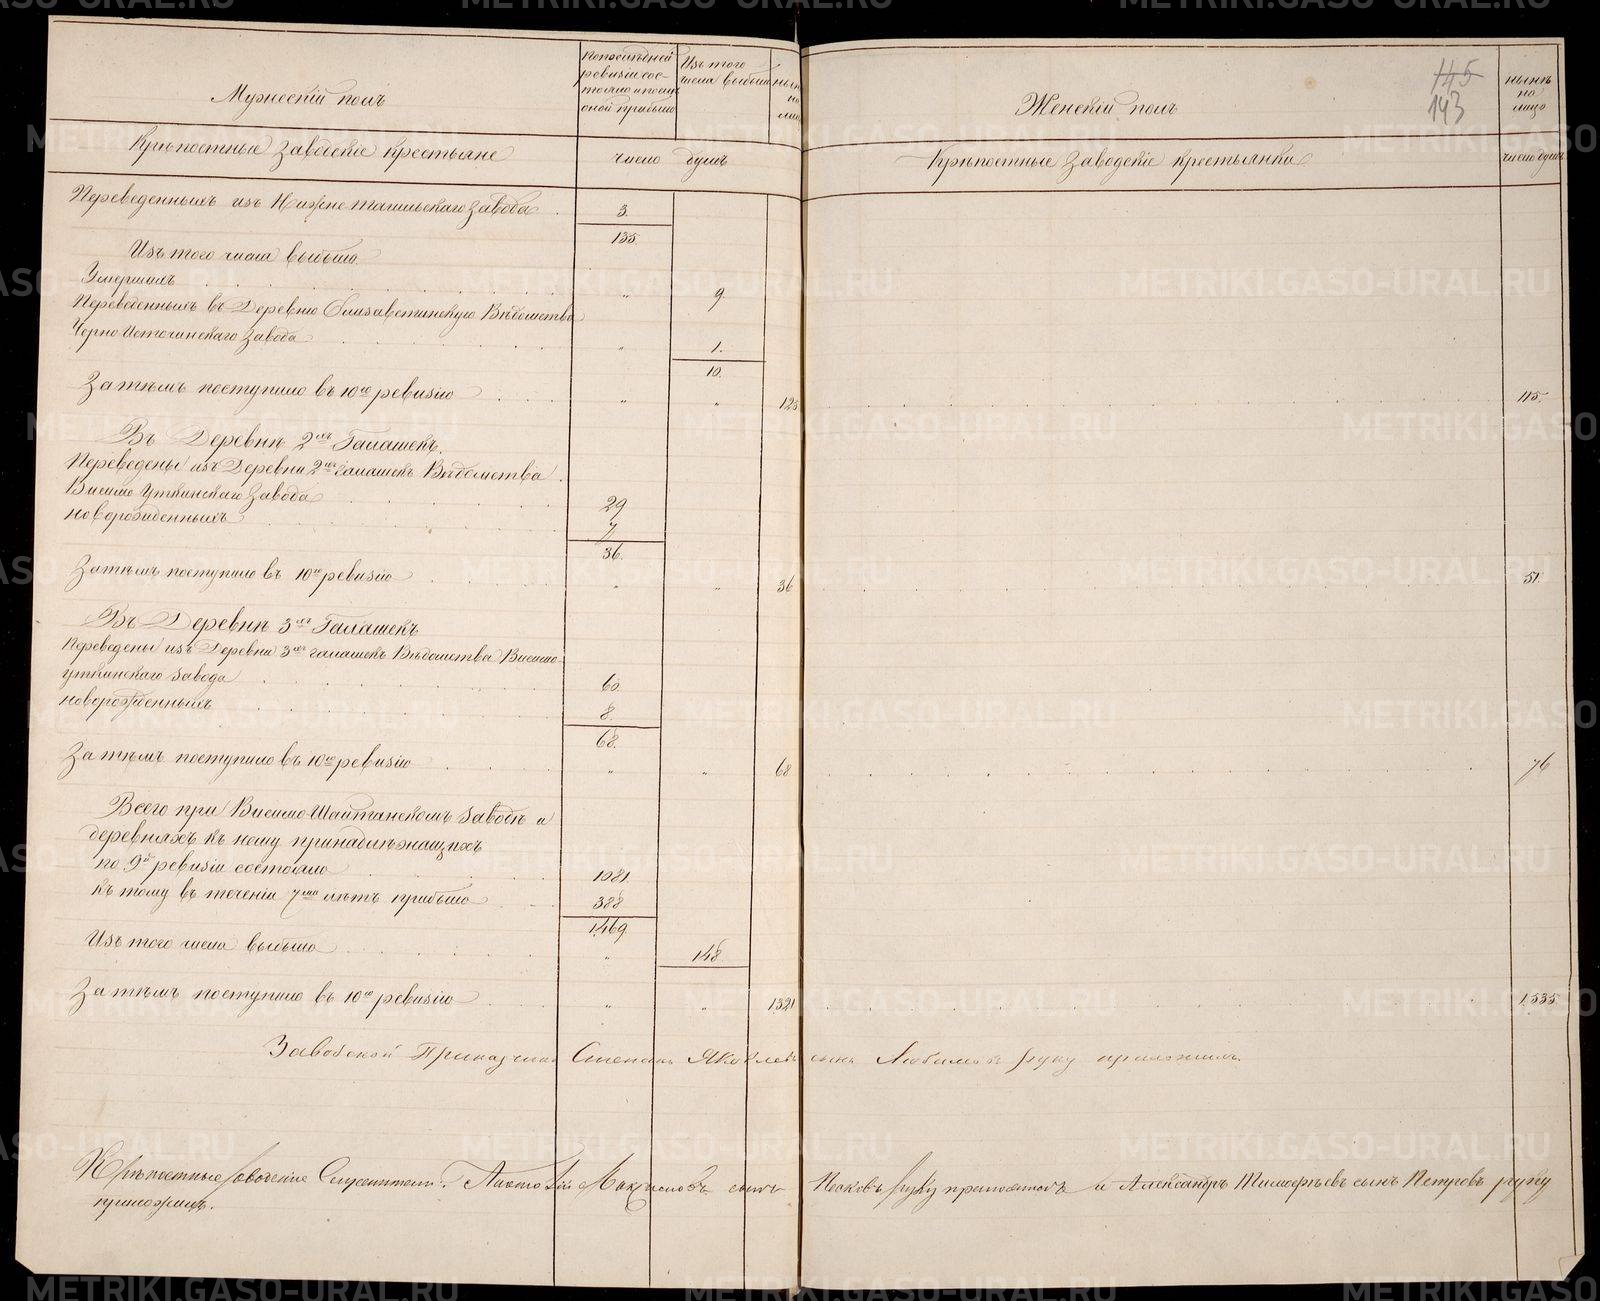 Мужескій полъ
По последней
ревизіи сос-
тояло и после
оной прибыло
Изъ того
числа выбыло
ныне
на
лицо
Женскій полъ
145
143
нынѣ
на
лицо
Крѣпостные Заводскіе Крестьяне
число душъ
Крѣпостные Заводскіе Крестьянки
число душъ
Переведенныхъ изъ Нижне Тагильскаго Завода . 3.
135
Изъ того числа выбыло
Умершихъ " 9
Переведенныхъ въ Деревню Елизаветинскую Вѣдомства
Черно Источинскаго Завода " 1.
10.
Затѣмъ поступило въ 10ю ревизію " " 125 115.
Въ Деревнѣ 2хъ Галашекъ.
Переведены изъ Деревни 2хъ галашекъ Вѣдомства
Висимо Уткинскаго Завода 29
новорожденныхъ 7
36.
Затѣмъ поступило въ 10ю ревизію " " 36 51.
Въ Деревнѣ 3хъ Галашекъ
Переведены изъ Деревни 3хъ галашекъ Вѣдомства Висимо
уткинскаго завода 60.
новорожденныхъ 8.
68.
Затѣмъ поступило въ 10ю ревизію " " 68 76
Всего при Висимо Шайтанскомъ заводѣ и
деревняхъ къ нему принадлѣжащихъ
по 9й ревизіи состояло 1081.
къ тому въ теченіи 7ми лѣтъ прибыло 388
1469.
Изъ того числа выбыло " 148
Затѣмъ поступило въ 10ю ревизію " " 1321 1535.
Заводской Прикащикъ Степанъ Яковлевъ сынъ Любимовъ руку приложилъ.
Крѣпостные заводскіе Служители: сынъ руку приложилъ и Александръ Тимофѣевъ сынъ Петровъ руку
приложилъ.
METRIKI.GASO-URAL.RU